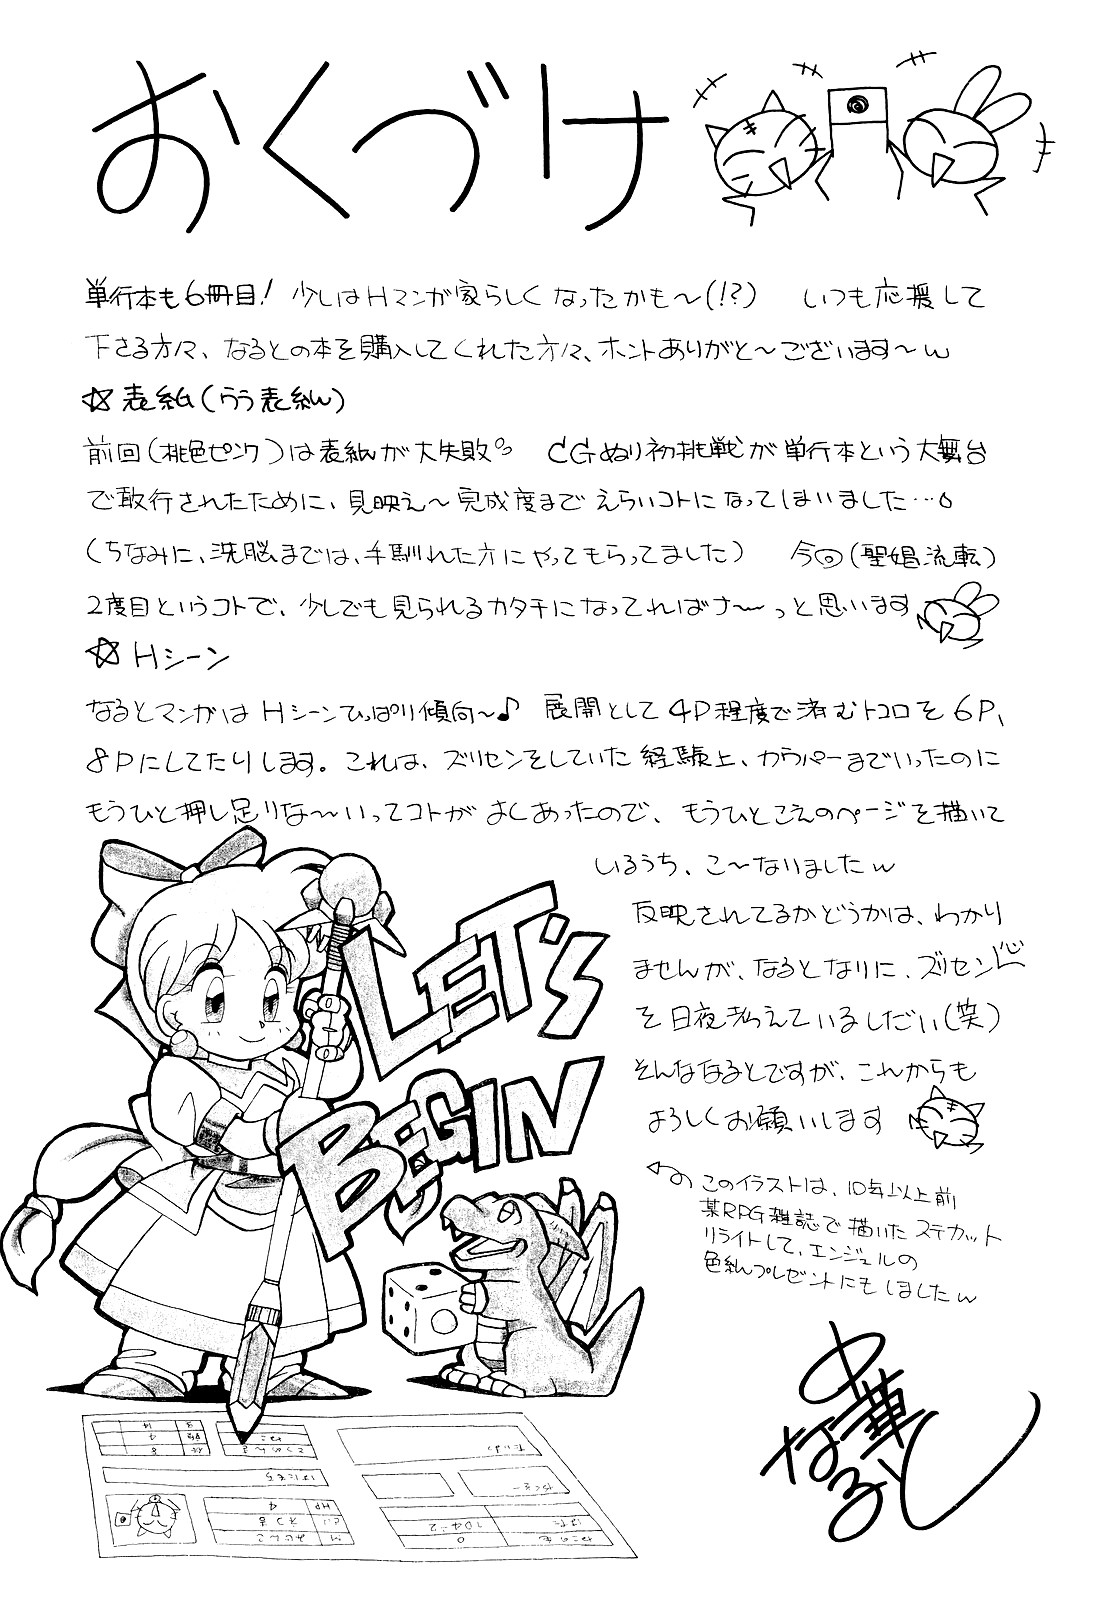 おくづけ
単行本も6冊目! 少しはHマンガ家らしくなったかも〜(!?) いつも応援して
下さる方々、なるとの本を購入してくれた方々、ホントありがと〜ございます〜w
☆表紙(うう表紙)
前回(桃色ピンク)は表紙が大失敗 CGぬり初挑戦が単行本という大舞台
で敢行されたために、見映え〜完成度までえらいコトになってしまいました…
(ちなみに、洗脳までは、手馴れた方にやってもらってました) 今回(聖娼流転)
2度目というコトで、少しでも見られるカタチになってればナ〜っと思います
☆Hシーン
なるとマンガはHシーンひっぱり傾向〜♪ 展開として4P程度で済むトコロを6P、
8Pにしてたりします。これは、ズリセンをしていた経験上、カウパーまでいったのに
もうひと押し足りな〜いってコトがよくあったので、もうひとこえのページを描いて
いるうち、こ〜なりましたw
反映されてるかどうかは、わかり
ませんが、なるとなりに、ズリセン
を日夜考えているしだい(笑)
そんななるとですが、これからも
よろしくお願いします
LET'S
BEGIN
このイラストは、10年以上前
某RPG雑誌で描いたステカット
リライトして、エンジェルの
色紙プレゼントにもしましたw
中華
なると
HP
4
0